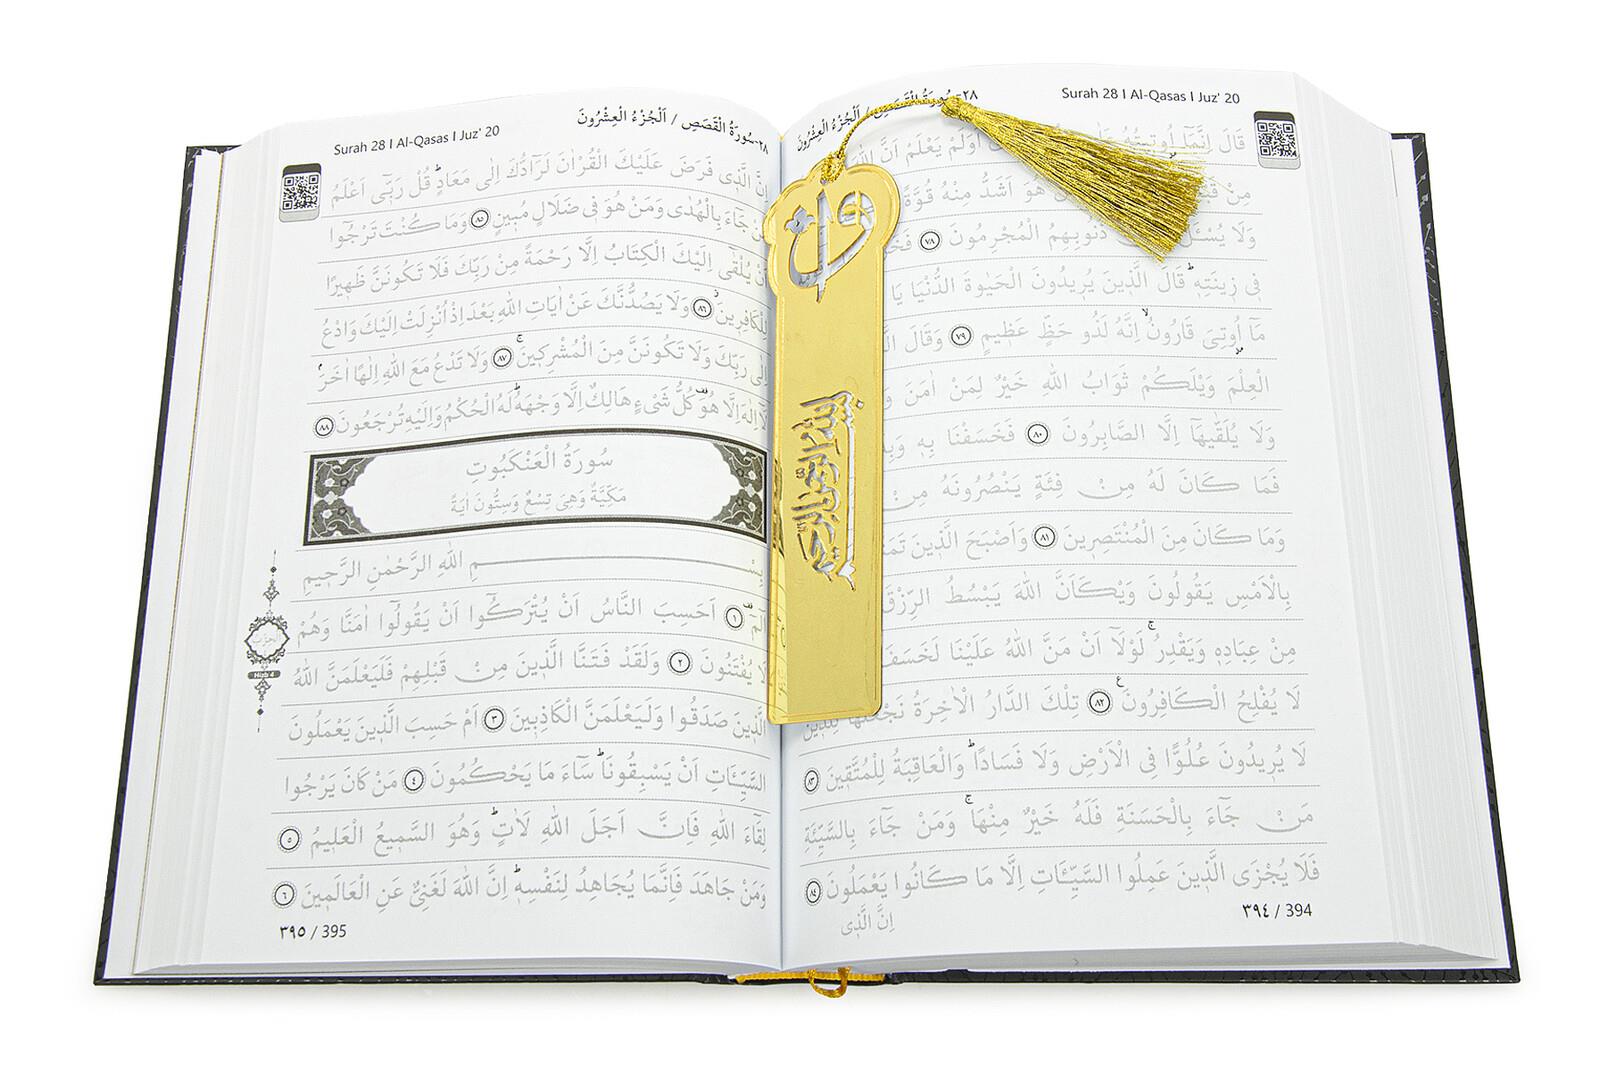 Surah 28 I Al-Qasas I Juz' 20
قَالَ اِنَّمَٓا اُو۫ت۪يتُهُ اَوَلَمْ يَعْلَمْ اَنَّ اللّٰهَ
مِنْ هُوَ اَشَدُّ مِنْهُ قُوَّةً
وَلَا ذُنُوبِهِمُ الْمُجْرِمُونَ ﴿٧٨﴾
ف۪ي ز۪ينَتِه۪ۜ قَالَ الَّذ۪ينَ يُر۪يدُونَ الْحَيٰوةَ الدُّنْيَا يَا
مَٓا اُو۫تِيَ قَارُونُۙ اِنَّهُ لَذُو حَظٍّ عَظ۪يمٍ ﴿٧٩﴾ وَقَالَ
الْعِلْمَ وَيْلَكُمْ ثَوَابُ اللّٰهِ خَيْرٌ لِمَنْ اٰمَنَ
وَلَا يُلَقّٰيهَٓا اِلَّا الصَّابِرُونَ ﴿٨٠﴾ فَخَسَفْنَا بِه۪
فَمَا كَانَ لَهُ مِنْ فِئَةٍ يَنْصُرُونَهُ مِنْ
وَمَا كَانَ مِنَ الْمُنْتَصِر۪ينَ ﴿٨١﴾ وَاَصْبَحَ الَّذ۪ينَ
بِالْاَمْسِ يَقُولُونَ وَيْكَاَنَّ اللّٰهَ يَبْسُطُ الرِّزْقَ
مِنْ عِبَادِه۪ وَيَقْدِرُۚ لَوْلَٓا اَنْ مَنَّ اللّٰهُ عَلَيْنَا لَخَسَفَ
لَا يُفْلِحُ الْكَافِرُونَ۟ ﴿٨٢﴾ تِلْكَ الدَّارُ الْاٰخِرَةُ نَجْعَلُهَا لِلَّذ۪ينَ
لَا يُر۪يدُونَ عُلُوًّا فِي الْاَرْضِ وَلَا فَسَادًاۜ وَالْعَاقِبَةُ لِلْمُتَّق۪ينَ ﴿٨٣﴾
مَنْ جَٓاءَ بِالْحَسَنَةِ فَلَهُ خَيْرٌ مِنْهَاۚ وَمَنْ جَٓاءَ بِالسَّيِّئَةِ
فَلَا يُجْزَى الَّذ۪ينَ عَمِلُوا السَّيِّـَٔاتِ اِلَّا مَا كَانُوا يَعْمَلُونَ ﴿٨٤﴾
اِنَّ الَّذ۪ي
٣٩٤ / 394
بسم الله الرحمن الرحيم
Surah 28 I Al-Qasas I Juz' 20
٢٨-سُورَةُ الْقَصَصِ / اَلْجُزْءُ الْعِشْرُونَ
اِنَّ الَّذ۪ي فَرَضَ عَلَيْكَ الْقُرْاٰنَ لَرَٓادُّكَ اِلٰى مَعَادٍۜ قُلْ رَبّ۪ٓي اَعْلَمُ
مَنْ جَٓاءَ بِالْهُدٰى وَمَنْ هُوَ ف۪ي ضَلَالٍ مُب۪ينٍ ﴿٨٥﴾ وَمَا كُنْتَ تَرْجُٓوا
اَنْ يُلْقٰٓى اِلَيْكَ الْكِتَابُ اِلَّا رَحْمَةً مِنْ رَبِّكَ فَلَا تَكُونَنَّ ظَه۪يرًا
لِلْكَافِر۪ينَۘ ﴿٨٦﴾ وَلَا يَصُدُّنَّكَ عَنْ اٰيَاتِ اللّٰهِ بَعْدَ اِذْ اُنْزِلَتْ اِلَيْكَ وَادْعُ
اِلٰى رَبِّكَ وَلَا تَكُونَنَّ مِنَ الْمُشْرِك۪ينَۚ ﴿٨٧﴾ وَلَا تَدْعُ مَعَ اللّٰهِ اِلٰهًا اٰخَرَۘ
لَٓا اِلٰهَ اِلَّا هُوَ۠ كُلُّ شَيْءٍ هَالِكٌ اِلَّا وَجْهَهُۜ لَهُ الْحُكْمُ وَاِلَيْهِ تُرْجَعُونَ ﴿٨٨﴾
سُورَةُ الْعَنْكَبُوتِ
مَكِّيَّةٌ وَهِيَ تِسْعٌ وَسِتُّونَ اٰيَةً
بِسْمِ اللّٰهِ الرَّحْمٰنِ الرَّح۪يمِ
الٓمٓ۠ ﴿١﴾ اَحَسِبَ النَّاسُ اَنْ يُتْرَكُٓوا اَنْ يَقُولُٓوا اٰمَنَّا وَهُمْ
لَا يُفْتَنُونَ ﴿٢﴾ وَلَقَدْ فَتَنَّا الَّذ۪ينَ مِنْ قَبْلِهِمْ فَلَيَعْلَمَنَّ اللّٰهُ
الَّذ۪ينَ صَدَقُوا وَلَيَعْلَمَنَّ الْكَاذِب۪ينَ ﴿٣﴾ اَمْ حَسِبَ الَّذ۪ينَ يَعْمَلُونَ
السَّيِّـَٔاتِ اَنْ يَسْبِقُونَاۜ سَٓاءَ مَا يَحْكُمُونَ ﴿٤﴾ مَنْ كَانَ يَرْجُوا
لِقَٓاءَ اللّٰهِ فَاِنَّ اَجَلَ اللّٰهِ لَاٰتٍۜ وَهُوَ السَّم۪يعُ الْعَل۪يمُ ﴿٥﴾
وَمَنْ جَاهَدَ فَاِنَّمَا يُجَاهِدُ لِنَفْسِه۪ۜ اِنَّ اللّٰهَ لَغَنِيٌّ عَنِ الْعَالَم۪ينَ ﴿٦﴾
٣٩٥ / 395